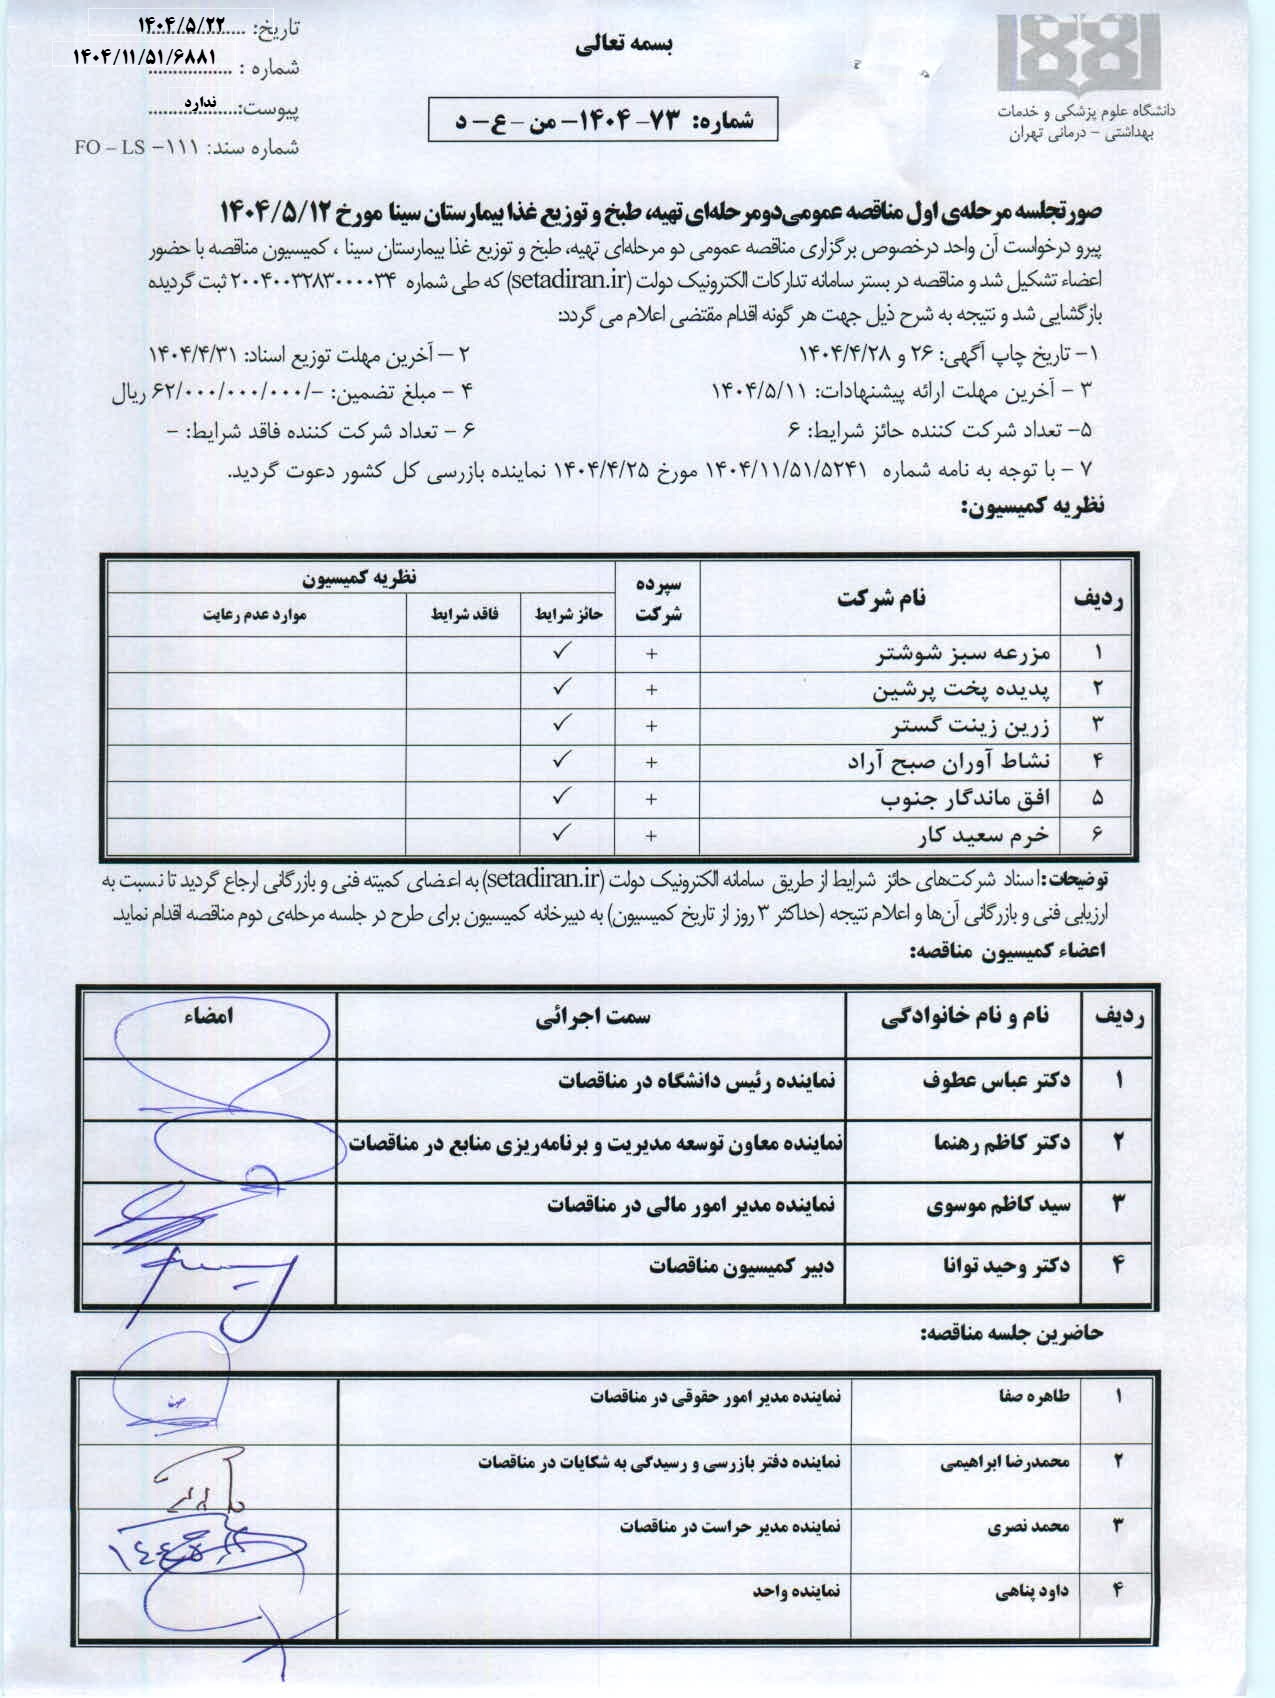 بسمه تعالی
تاریخ: ۱۴۰۴/۵/۲۲
شماره : ۱۴۰۴/۱۱/۵۱/۶۸۸۱
پیوست: ندارد
شماره سند: FO – LS –۱۱۱
دانشگاه علوم پزشکی و خدمات
بهداشتی – درمانی تهران
شماره: ۷۳– ۱۴۰۴– من –ع– د
صورتجلسه مرحله‌ی اول مناقصه عمومی‌دومرحله‌ای تهیه، طبخ و توزیع غذا بیمارستان سینا مورخ ۱۴۰۴/۵/۱۲
پیرو درخواست آن واحد درخصوص برگزاری مناقصه عمومی دو مرحله‌ای تهیه، طبخ و توزیع غذا بیمارستان سینا ، کمیسیون مناقصه با حضور
اعضاء تشکیل شد و مناقصه در بستر سامانه تدارکات الکترونیک دولت (setadiran.ir) که طی شماره ۲۰۰۴۰۰۳۲۸۳۰۰۰۰۳۴ ثبت گردیده
بازگشایی شد و نتیجه به شرح ذیل جهت هر گونه اقدام مقتضی اعلام می گردد:
۱– تاریخ چاپ آگهی: ۲۶ و ۱۴۰۴/۴/۲۸ ۲ – آخرین مهلت توزیع اسناد: ۱۴۰۴/۴/۳۱
۳ – آخرین مهلت ارائه پیشنهادات: ۱۴۰۴/۵/۱۱ ۴ – مبلغ تضمین: –/۶۲/۰۰۰/۰۰۰/۰۰۰ ریال
۵– تعداد شرکت کننده حائز شرایط: ۶ ۶ – تعداد شرکت کننده فاقد شرایط: –
۷ – با توجه به نامه شماره ۱۴۰۴/۱۱/۵۱/۵۲۴۱ مورخ ۱۴۰۴/۴/۲۵ نماینده بازرسی کل کشور دعوت گردید.
نظریه کمیسیون:
ردیف نام شرکت سپرده شرکت نظریه کمیسیون
حائز شرایط فاقد شرایط موارد عدم رعایت
۱ مزرعه سبز شوشتر + ✓
۲ پدیده پخت پرشین + ✓
۳ زرین زینت گستر + ✓
۴ نشاط آوران صبح آراد + ✓
۵ افق ماندگار جنوب + ✓
۶ خرم سعید کار + ✓
توضیحات:اسناد شرکت‌های حائز شرایط از طریق سامانه الکترونیک دولت (setadiran.ir) به اعضای کمیته فنی و بازرگانی ارجاع گردید تا نسبت به
ارزیابی فنی و بازرگانی آن‌ها و اعلام نتیجه (حداکثر ۳ روز از تاریخ کمیسیون) به دبیرخانه کمیسیون برای طرح در جلسه مرحله‌ی دوم مناقصه اقدام نماید.
اعضاء کمیسیون مناقصه:
ردیف نام و نام خانوادگی سمت اجرائی امضاء
۱ دکتر عباس عطوف نماینده رئیس دانشگاه در مناقصات
۲ دکتر کاظم رهنما نماینده معاون توسعه مدیریت و برنامه‌ریزی منابع در مناقصات
۳ سید کاظم موسوی نماینده مدیر امور مالی در مناقصات
۴ دکتر وحید توانا دبیر کمیسیون مناقصات
حاضرین جلسه مناقصه:
۱ طاهره صفا نماینده مدیر امور حقوقی در مناقصات
۲ محمدرضا ابراهیمی نماینده دفتر بازرسی و رسیدگی به شکایات در مناقصات
۳ محمد نصری نماینده مدیر حراست در مناقصات
۴ داود پناهی نماینده واحد